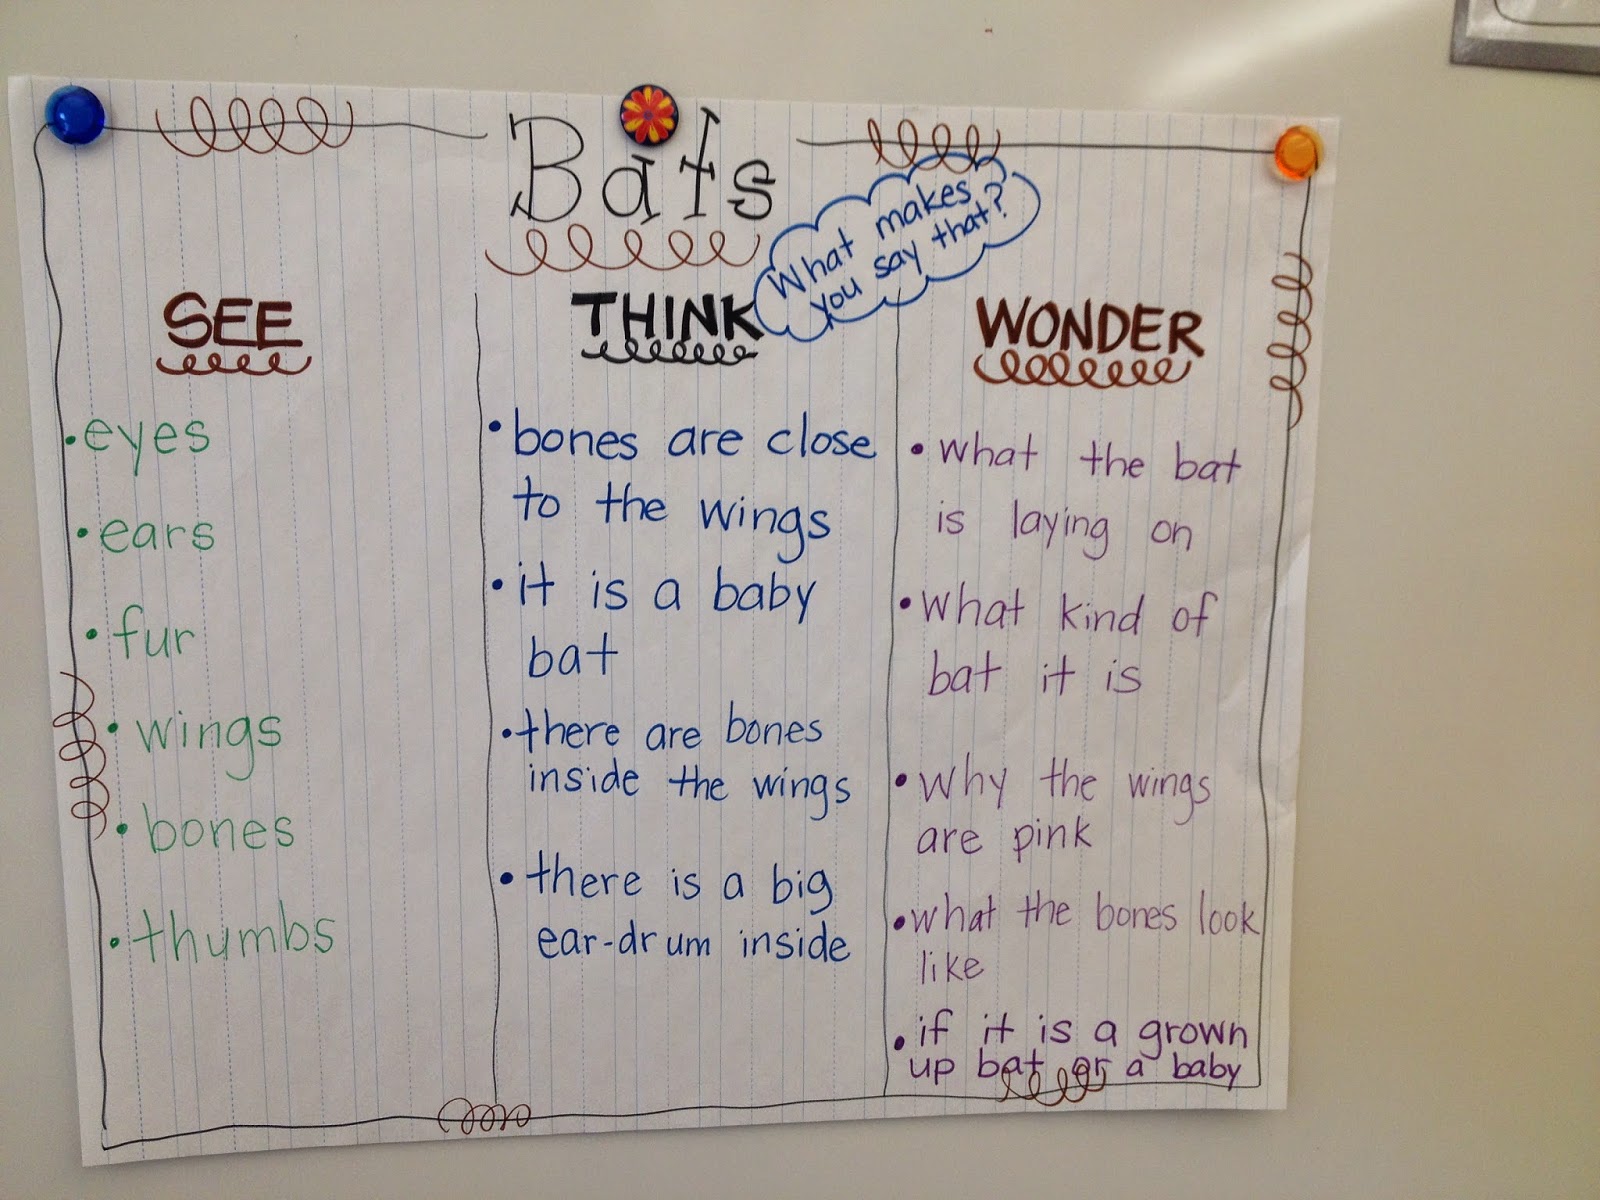 Bats
What makes
you say that?
SEE
• eyes
• ears
• fur
• wings
• bones
• thumbs
THINK
• bones are close
to the wings
• it is a baby
bat
• there are bones
inside the wings
• there is a big
ear-drum inside
WONDER
• what the bat
is laying on
• what kind of
bat it is
• why the wings
are pink
• what the bones look
like
• if it is a grown
up bat or a baby